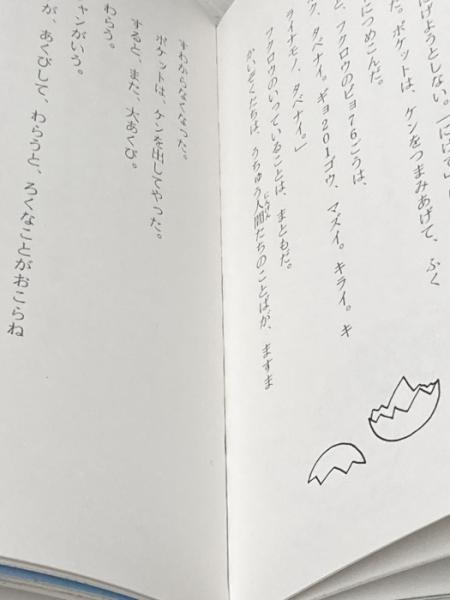 げようとしない。
ポケットは、ケンをつまみあげて、ふく
につめこんだ。
と、フクロウのピョ76ごうは、
ウ、タベナイ。ギョ201ゴウ、マズイ。キライ。キ
ライナモノ、タベナイ。」
フクロウのいっていることは、まともだ。
かいぞくたちは、うちゅう人間たちのことばが、ますま
すわからなくなった。
ポケットは、ケンを出してやった。
すると、また、大あくび。
わらう。
ャンがいう。
が、あくびして、わらうと、ろくなことがおこらね